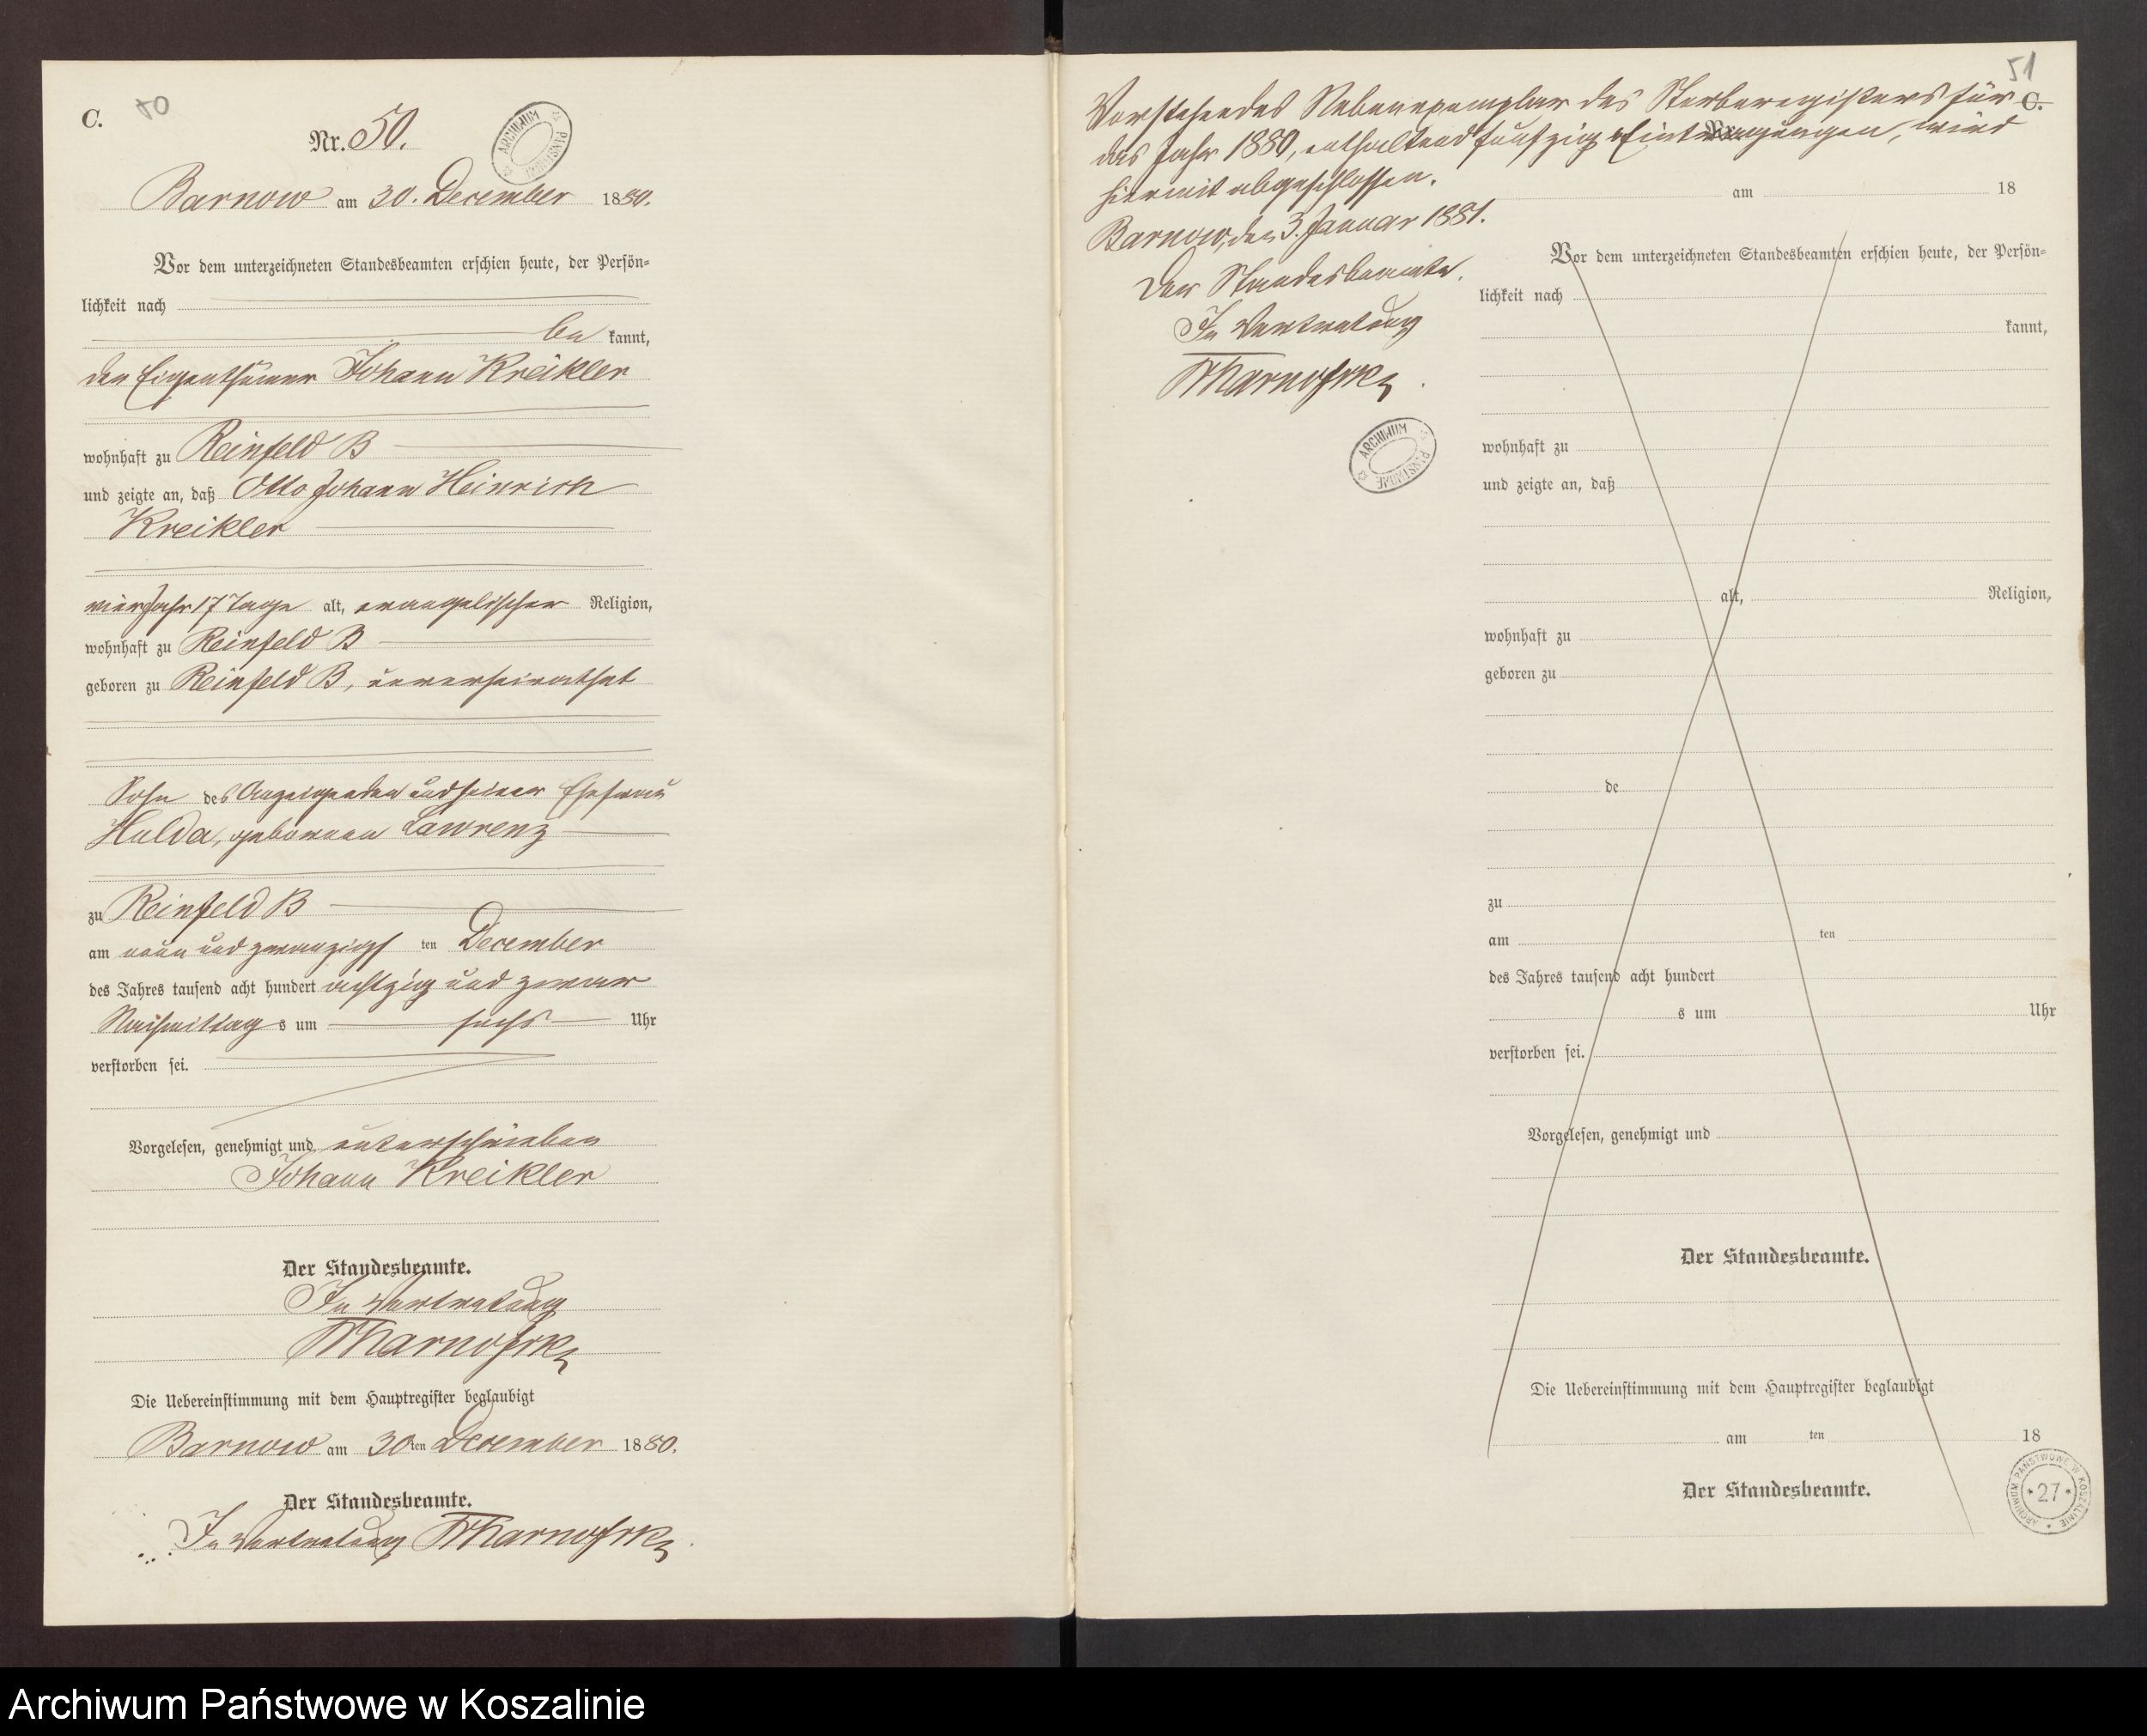 C. 50
Nr. 50.
ARCHIWUM PAŃSTWOWE
Barnow am 30. December 1880.
Vor dem unterzeichneten Standesbeamten erschien heute, der Persön-
lichkeit nach
be kannt,
der Eigenthümer Johann Kreikler
wohnhaft zu Reinfeld B
und zeigte an, daß Otto Johann Heinrich
Kreikler
vier Jahr 17 Tage alt, evangelischer Religion,
wohnhaft zu Reinfeld B
geboren zu Reinfeld B, unverheirathet
Sohn des Anzeigenden und seiner Ehefrau
Hulda, geborenen Lawrenz
zu Reinfeld B
am neun und zwanzigs ten December
des Jahres tausend acht hundert achtzig und zwar
Nachmittag s um sechs Uhr
verstorben sei.
Vorgelesen, genehmigt und unterschrieben
Johann Kreikler
Der Standesbeamte.
In Vertretung
Die Uebereinstimmung mit dem Hauptregister beglaubigt
Barnow am 30 ten December 1880.
Der Standesbeamte.
In Vertretung
51
C.
Vorstehendes Nebenexemplar des Sterberegisters für
das Jahr 1880, enthaltend fünfzig Eintragungen, wird
hiermit abgeschlossen.
Barnow, den 3. Januar 1881.
Der Standesbeamte.
In Vertretung
ARCHIWUM PAŃSTWOWE
am 18
Vor dem unterzeichneten Standesbeamten erschien heute, der Persön-
lichkeit nach
kannt,
wohnhaft zu
und zeigte an, daß
alt, Religion,
wohnhaft zu
geboren zu
de
zu
am ten
des Jahres tausend acht hundert
s um Uhr
verstorben sei.
Vorgelesen, genehmigt und
Der Standesbeamte.
Die Uebereinstimmung mit dem Hauptregister beglaubigt
am ten 18
Der Standesbeamte.
ARCHIWUM PAŃSTWOWE W KOSZALINIE
27
Archiwum Państwowe w Koszalinie